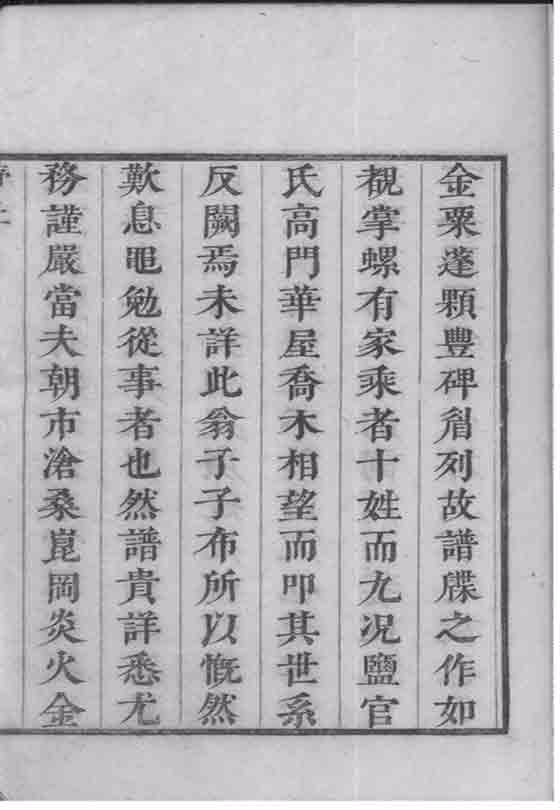 金粟蓬顆豐碑眉列故譜牒之作如
覩掌螺有家乘者十姓而九况鹽官
氏高門華屋喬木相望而叩其世系
反闕焉未詳此翁子子布所以慨然
歎息黽勉從事者也然譜貴詳悉尤
務謹嚴當夫朝市滄桑崑岡炎火金